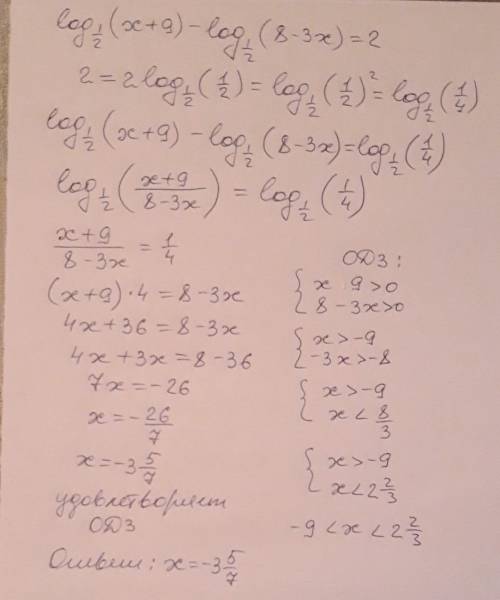 log_{1/2}(x+9) - log_{1/2}(8-3x) = 2
2 = 2log_{1/2}(1/2) = log_{1/2}(1/2)^2 = log_{1/2}(1/4)
log_{1/2}(x+9) - log_{1/2}(8-3x) = log_{1/2}(1/4)
log_{1/2}((x+9)/(8-3x)) = log_{1/2}(1/4)
(x+9)/(8-3x) = 1/4
(x+9)·4 = 8-3x
4x+36 = 8-3x
4x+3x = 8-36
7x = -26
x = -26/7
x = -3 5/7
удовлетворяет
ОДЗ
Ответ: x = -3 5/7
ОДЗ:
{ x 9>0
8-3x>0
{ x>-9
-3x>-8
{ x>-9
x< 8/3
{ x>-9
x<2 2/3
-9<x<2 2/3